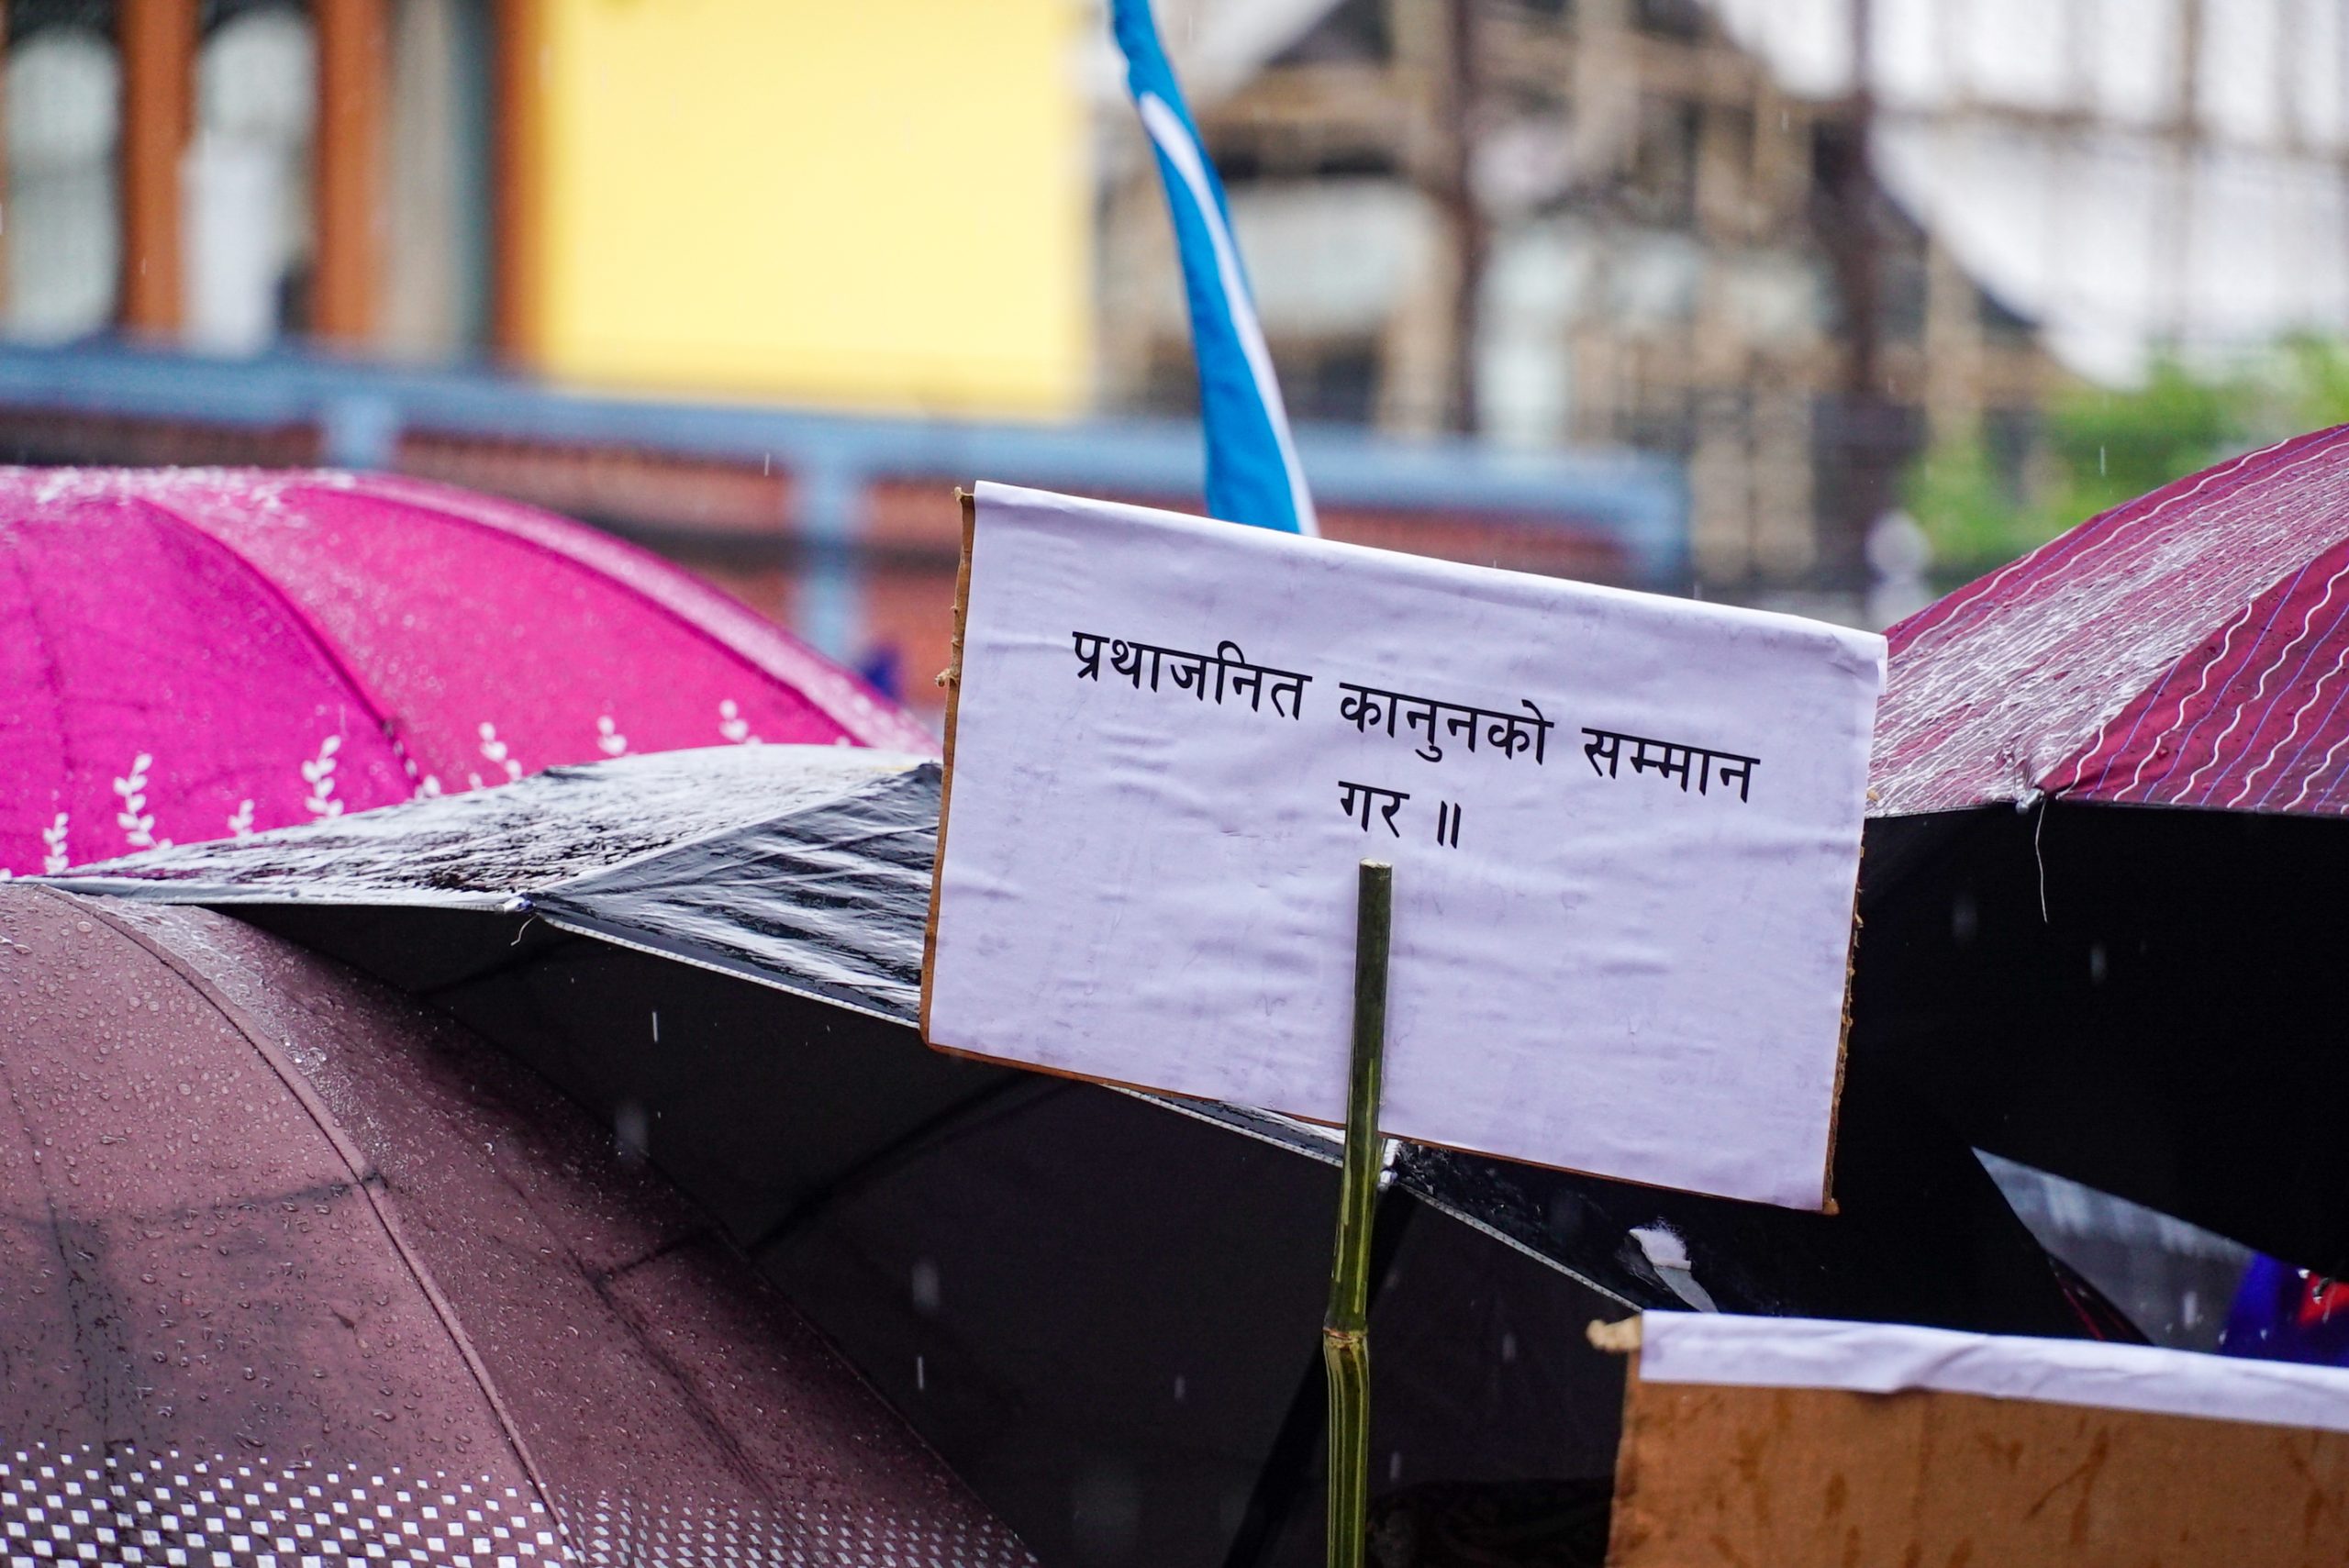 प्रथाजनित कानुनको सम्मान
गर ॥